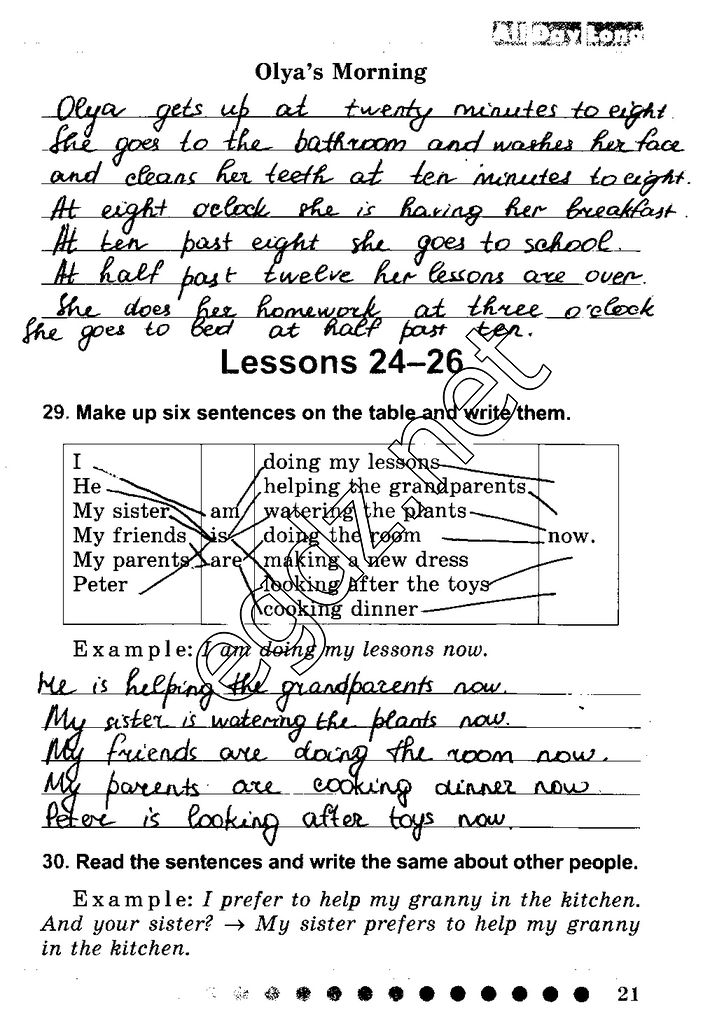 All Day Long
Olya's Morning
Olya gets up at twenty minutes to eight
She goes to the bathroom and washes her face
and cleans her teeth at ten minutes to eight.
At eight o'clock she is having her breakfast.
At ten past eight she goes to school.
At half past twelve her lessons are over.
She does her homework at three o'clock
She goes to bed at half past ten.
Lessons 24–26
29. Make up six sentences on the table and write them.
I doing my lessons
He helping the grandparents
My sister am watering the plants
My friends is doing the room now.
My parents are making a new dress
Peter looking after the toys
cooking dinner
Example: I am doing my lessons now.
He is helping the grandparents now.
My sister is watering the plants now.
My friends are doing the room now.
My parents are cooking dinner now
Petere is looking after toys now.
30. Read the sentences and write the same about other people.
Example: I prefer to help my granny in the kitchen.
And your sister? → My sister prefers to help my granny
in the kitchen.
21
egdz.net